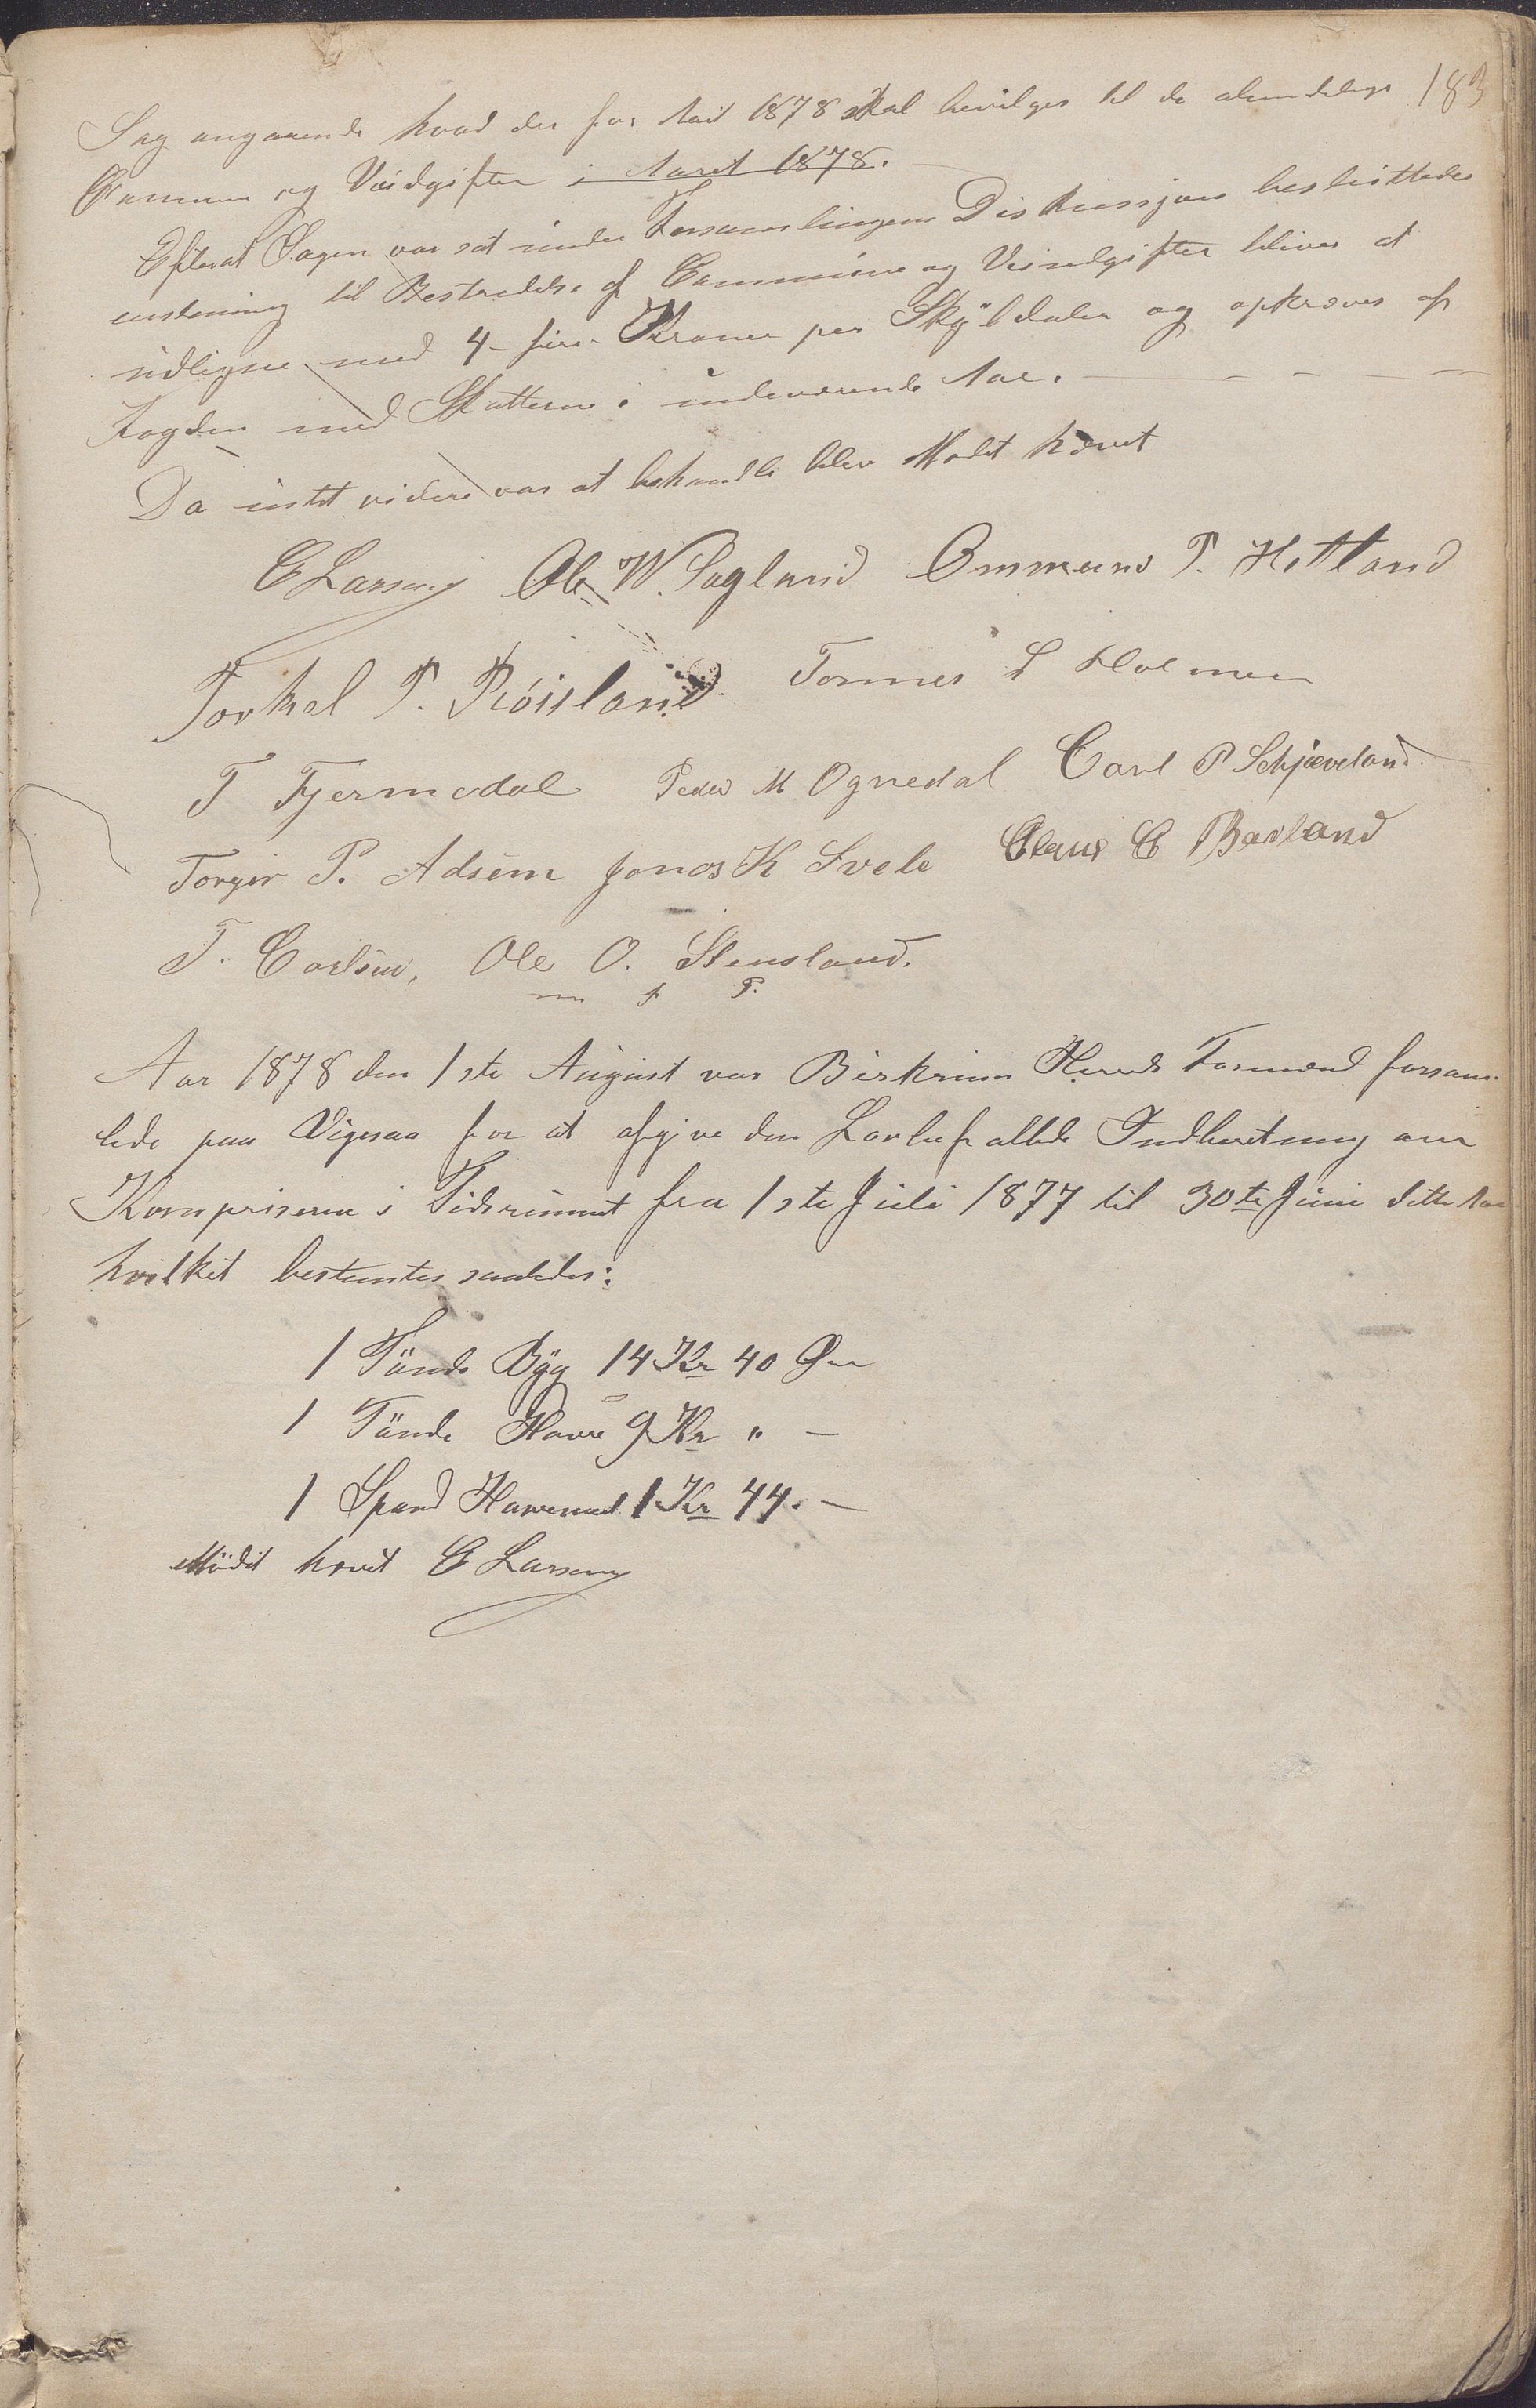 183
Sag angaaende hvad der for Aaret 1878 skal bevilges til de almindelige
Commune og Veiudgifter i Aaret 1878.
Efterat Sagen var sat under Forsamlingens Diskussjon besluttedes
enstemmig til Bestridelse af Commune og Veiudgifter bliver at
udligne med 4 - fire - Kroner per Skylddaler og opkræves af
Fogden med Skatterne i indeværende Aar.
Da intet videre var at behandle blev Mødet hævet
E Larsen Ole W. Sagland Ommund T. Hetland
Torkel T. Røisland Tonnes L Holmen
T Fjermedal Peder M Ognedal Carl P Schjæveland.
Torger P. Adsem Jonas K Svele Claus C Birland
T. Carlsen, Ole O. Stensland.
m f P.
Aar 1878 den 1ste August var Birkrem Herreds Formænd forsam-
lede paa Vigesaa for at afgive den Lovbefallede Indberetning om
Kornpriserne i Tidsrummet fra 1ste Juli 1877 til 30te Juni dette Aar
hvilket bestemtes saaledes:
1 Tünde Byg 14 Kr 40 Øre
1 Tünde Havre 9 Kr " —
1 Spand Havremel 1 Kr 44. —
Mödet hævet E Larsen